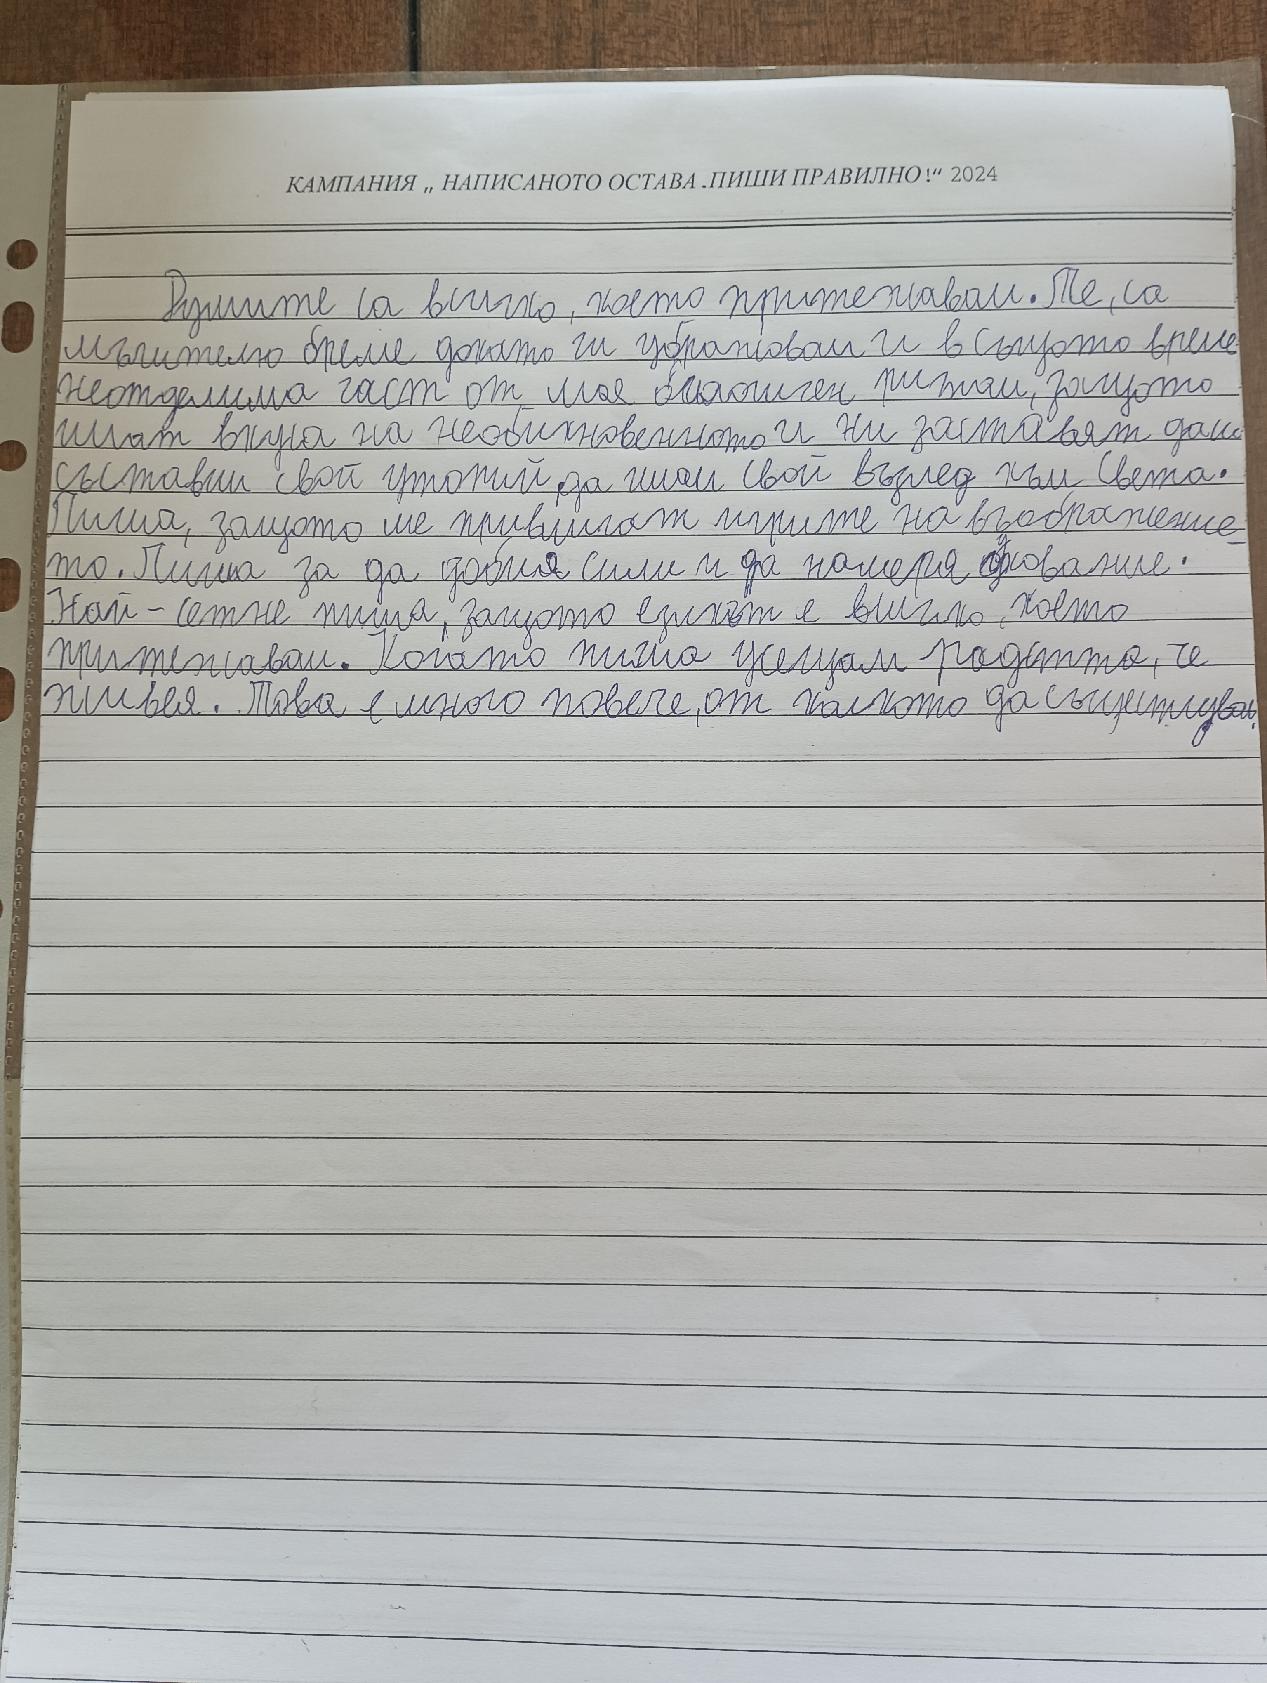 КАМПАНИЯ „ НАПИСАНОТО ОСТАВА .ПИШИ ПРАВИЛНО!“ 2024
Думите са всичко, което притежавам. Те, са
мъчително бреме докато ги изображавам и в същото време
неотделима част от моя биологичен ритъм, защото
имат вкуса на необикновенното и ни заставят да си
съставим свой утопий, да имам свой възглед към света.
Пиша, защото ме привличат игрите на въображение-
то. Пиша за да добия сили и да намеря
Най - сетне пиша, защото езикът е всичко, което
притежавам. Когато пиша усещам радостта, че
живея. Това е много повече, от колкото да съществувам.